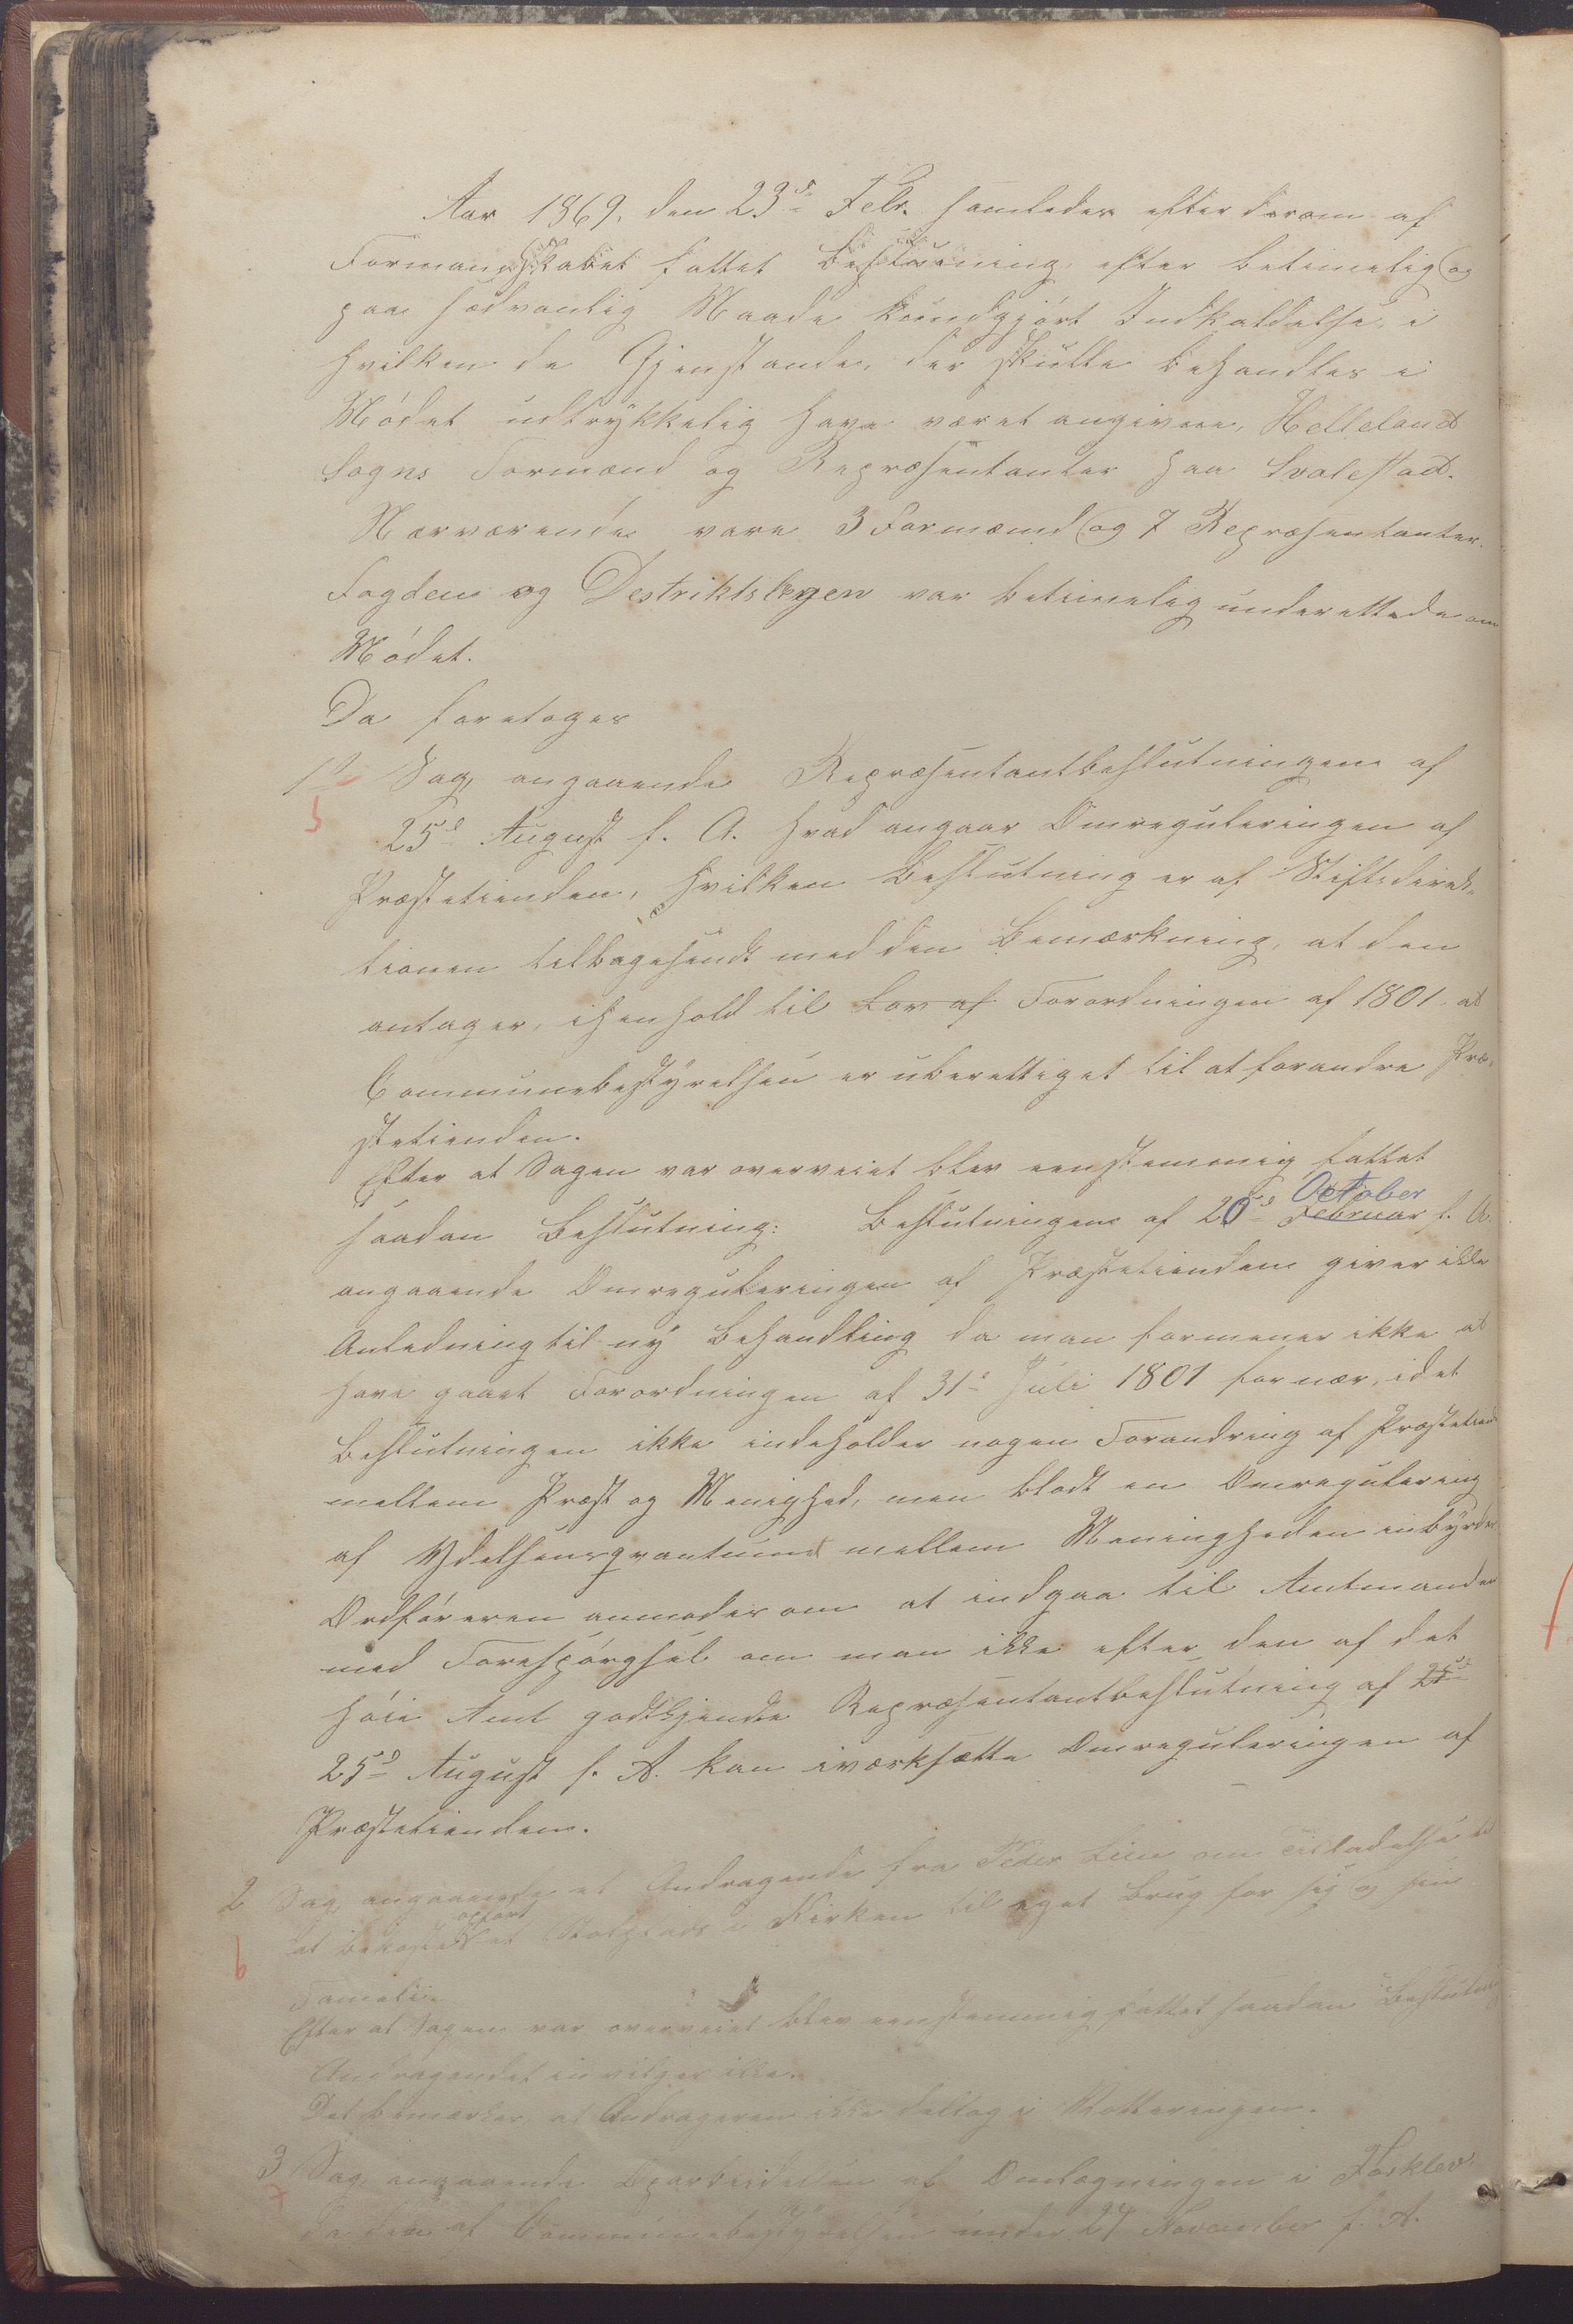 Aar 1869, den 23d Febr. samledes efter derom af
Formandskabet fattet Beslutning efter betimelig og
paa sedvanlig Maade kundgjórt Indkaldelse, i
hvilken de Gjenstande, der skulle behandles i
Módet udtrykkelig have været angivne, Helleland
Sogns Formænd og Repræsentanter paa Svalestad.
Nærværende vare 3 Formænd og 7 Repræsentanter.
Fogden og Destriktslegen var betimelig underettede om
Módet.
Da foretoges
1o Sag, angaaende Repræsentantbeslutningen af
5
25d August f. A. hvad angaar Omreguleringen af
Præstetienden, hvilken Beslutning er af Stiftsdirek-
tionen tilbagesendt med den Bemærkning, at den
antager, ihenhold til Lov af Forordningen af 1801, at
Communebestyrelsen er uberettiget til at forandre Præ-
stetienden.
Efter at Sagen var overveiet blev eenstemmig fattet
saadan Beslutning: Beslutningen af 20d Februar October f. A.
angaaende Omreguleringen af Præstetienden giver ikke
Anledning til ny Behandling da man formener ikke at
have gaaet Forordningen af 31d Juli 1801 for nær, idet
Beslutningen ikke indeholder nogen Forandring af Præstetiend
mellem Præst og Menighed, men blodt en Omregulering
af Ydelsensqvantum mellem Meningheden inbyrdes
Ordfóreren anmodes om at indgaa til Amtmanden
med Forespórgsel om man ikke efter den af det
hóie Amt godkjendte Repræsentantbeslutning af 25d
25d August f. A. kan iværksætte Omreguleringen af
Præstetienden.
2 Sag angaaende et Andragende fra Peder Lien om Tilladelse til
6
at bekoste opfórt et Stolestade i Kirken til eget Brug for sig og sin
Familie.
Efter at Sagen var overveiet blev eenstemmig fattet saadan Beslutning
Andragendet invilges ikke.
Det bemærkes, at Andrageren ikke deltog i Votteringen.
3 Sag, angaaende Oparbeidelsen af Omlægningen i
7
da den af Communebestyrelsen under 24 November f. A.